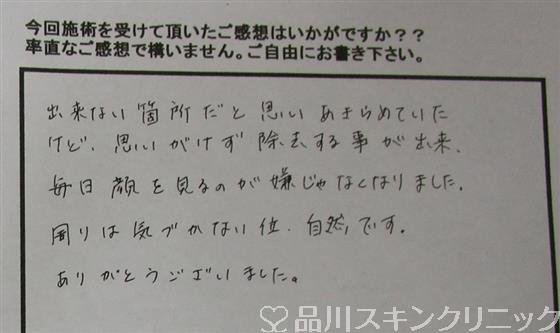 今回施術を受けて頂いたご感想はいかがですか??
率直なご感想で構いません。ご自由にお書き下さい。
出来ない箇所だと思いあきらめていた
けど、思いがけず除去する事が出来、
毎日顔を見るのが嫌じゃなくなりました。
周りは気づかない位、自然です。
ありがとうございました。
品川スキンクリニック